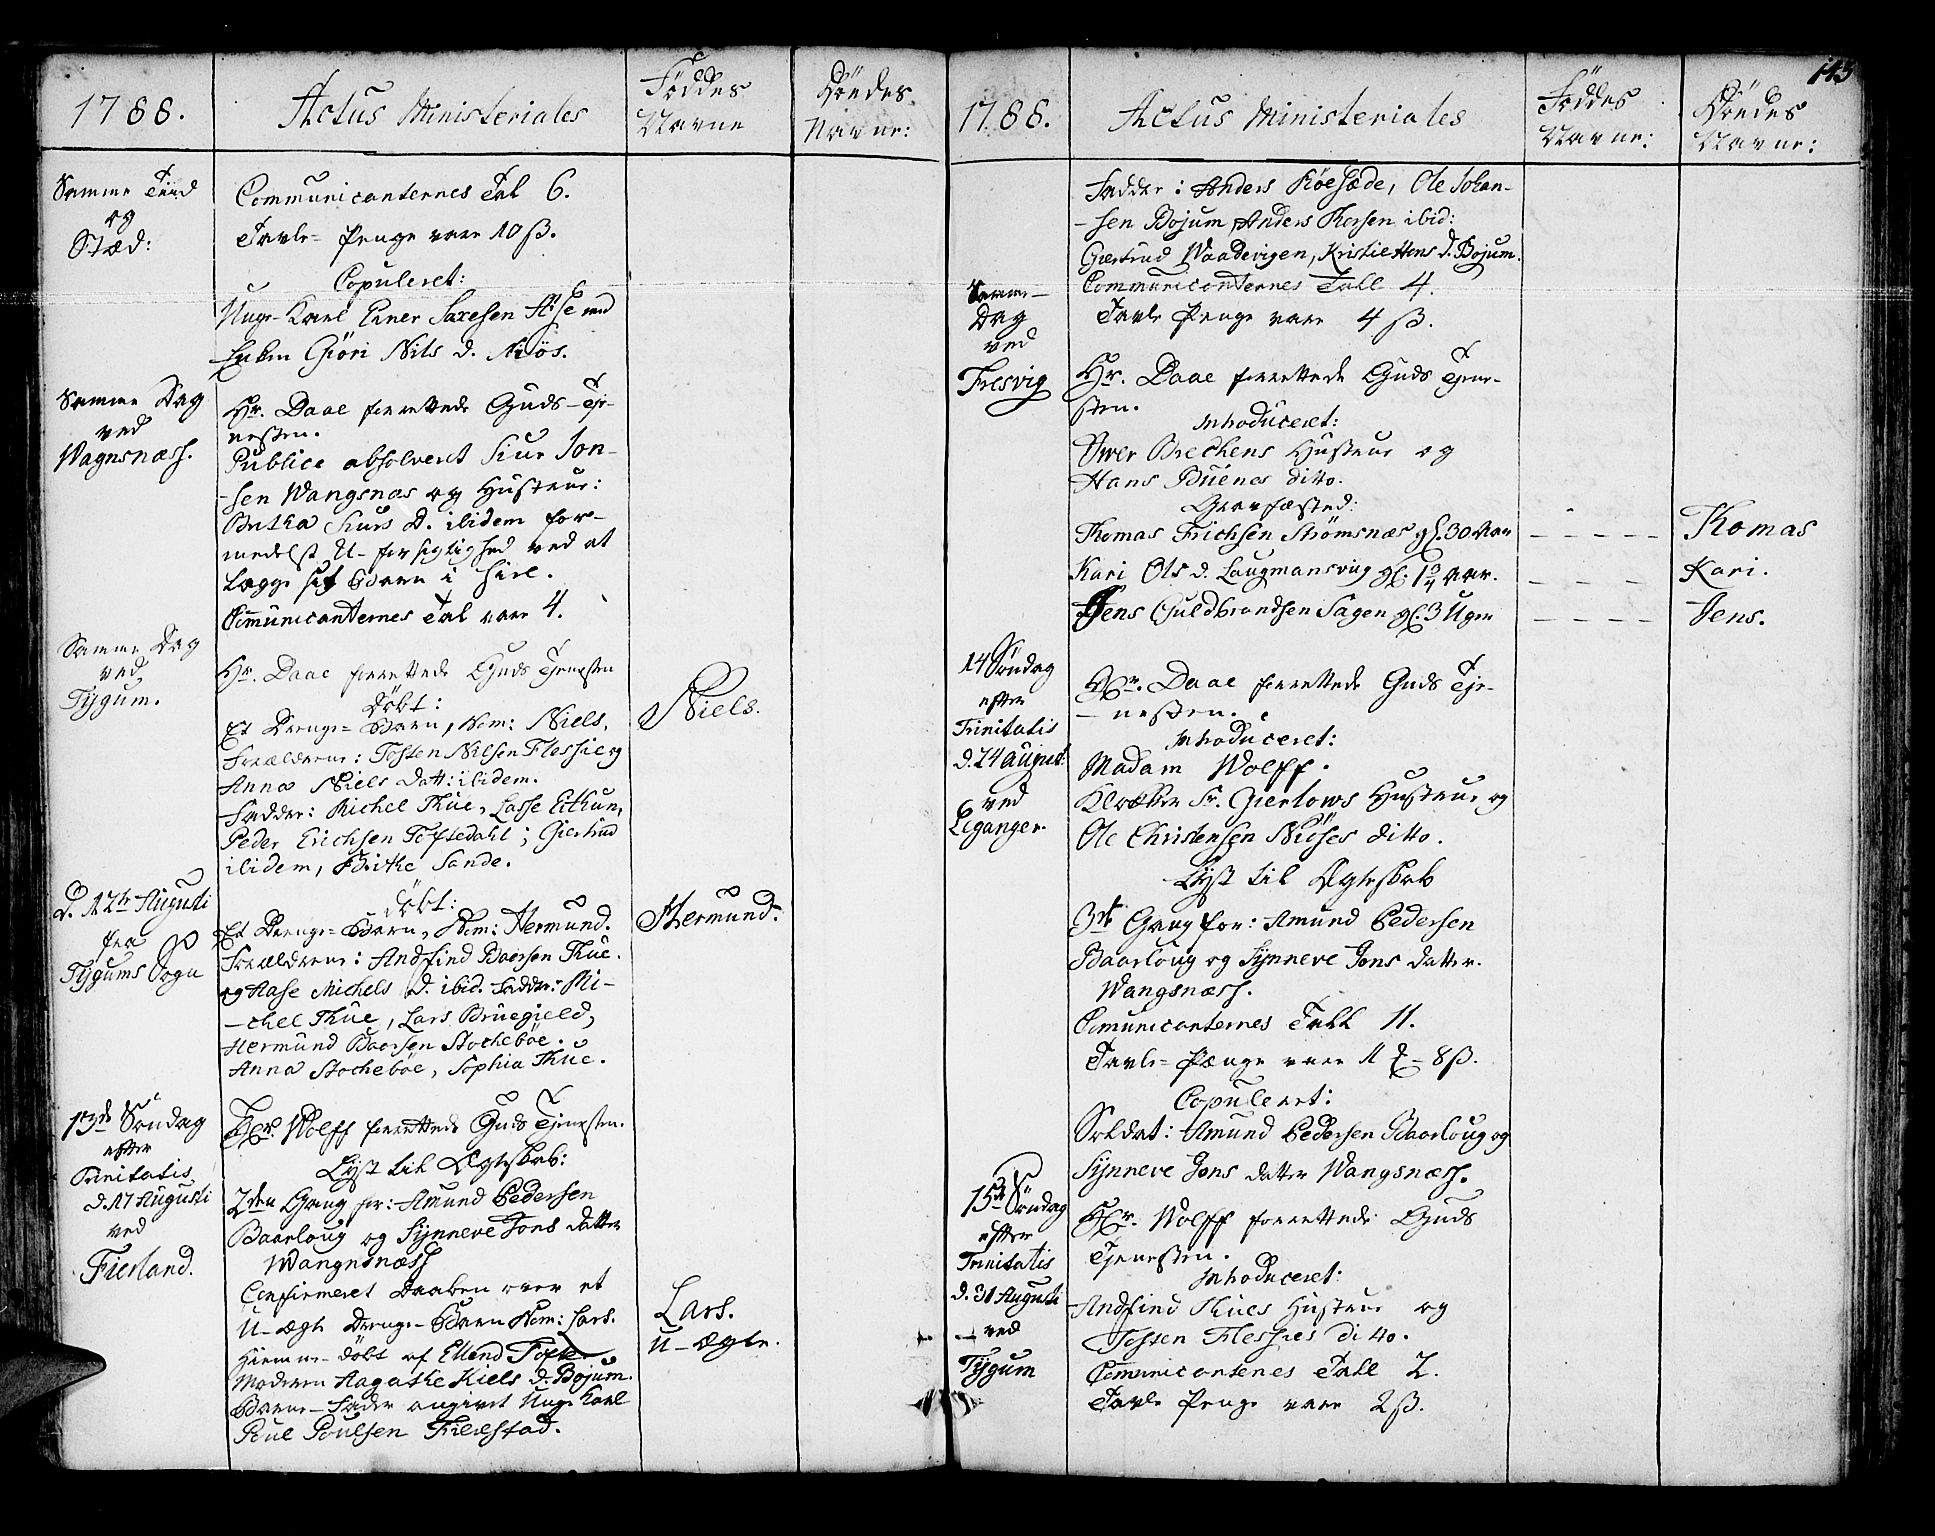 1788.
Actus Ministeriales
Föddes
Navne
Döedes
Navne:
Samme Tiid
og
Stæd:
Communicanternes Tal 6.
Tavle-Penge vare 10 ß.
Copuleret:
Unge-Karl Einer Saxesen Hase med
Giöri Nils d. Niös.
Samme Dag
ved
Wagnsnæss.
Hr. Daae forrettede Guds-Tje-
nesten.
Publice absolveret Siur Jon-
-sen Wangsnæs og Hustrue:
Britha Siurs D. ibidem for-
medelst U-forsigtighed ved at
lægge sit Barn i hiel.
Comunicanternes Tal vare 4.
Samme Dag
ved
Tygum.
Hr. Daae forrettede Guds Tjenesten
Döbt:
Et Drenge-Barn, Nom: Niels,
Forældrene: Tosten Nilsen Flessie og
Anna Niels datt: ibidem.
Fadder: Michel Thue, Lasse Eithun,
Peder Erichsen Toftedahl; Giertrud
ibidem, Brithe Sande.
Niels.
D. 12te Augusti
fra
Tygums Sogn
Döbt:
Et Drenge-Barn, Nom: Hermund.
Forældrene: Andfind Baarsen Thue.
og Aase Michels D. ibid. Fadder: Mi-
-chel Thue, Lars Bruegield,
Hermund Baarsen Stocheböe.
Anna Stocheböe, Sophia Thue.
Hermund.
13de Söndag
efter
Trinitatis
d. 17 Augusti
ved
Fierland.
Hr. Wolff forrettede Guds Tjenesten.
Lyst til Ægteskab:
2den Gang for: Amund Pedersen
Baarloug og Synneve Jons datter
Wangnsnæss
Confirmeret Daaben over et
U-ægte Drenge-Barn Nom: Lars.
Hiemme-döbt af Ellend Tofte
Moderen Aagathe Niels d. Bojum.
Barne-Fader angivet Unge Karl
Poul Poulsen Fieldstad.
Lars.
U-ægte.
143
1788.
Actus Ministeriales
Föddes
Navne:
Döedes
Navne:
Fadder: Anders Röesæde, Ole Johan-
-sen Bojum, Anders Thorsen ibid:
Giertrud Waadevigen, Kristie Hans d. Bojum.
Communicanternes Tall 4.
Tavle Penge vare 4 ß.
Samme-
Dag
ved
Fresvig
Hr. Daae forrettede Guds Tjene-
sten.
Introduceret:
Iver Brechens Hustrue og
Hans Buenes ditto.
Gravfæsted:
Thomas Frichsen Strömsnæs gl. 30 Aar - - - - - Thomas
Kari Ols d. Laugmansvig gl. 1 3/4 Aar. - - - - Kari.
Jens Guldbrandsen Sagen gl. 3 Uger - - - - Jens.
14 Söndag
efter
Trinitatis
d. 24 August
ved
Leganger.
Hr. Daae forrettede Guds Tje-
-nesten.
Introduceret:
Madam Wolff.
Klokker Sr. Giertows Hustrue og
Ole Christensen Niöses ditto.
Lyst til Ægteskab
3die Gang for: Amund Pedersen
Baarloug og Synneve Jons datter.
Wangsnæss.
Comunicanternes Tall 11.
Tavle-Penge vare 1 - 8 ß.
Copuleret:
Soldat: Amund Pedersen Baarloug og
Synneve Jons datter Wangsnæss.
15de Söndag
efter
Trinitatis
d. 31 Augusti
- ved
Tygum
Hr. Wolff forrettede Guds
Tjenesten.
Introduceret:
Andfind Thues Hustrue og
Tosten Flessies ditto.
Comunicantenes Tall 2.
Tavle Penge vare 2 ß.